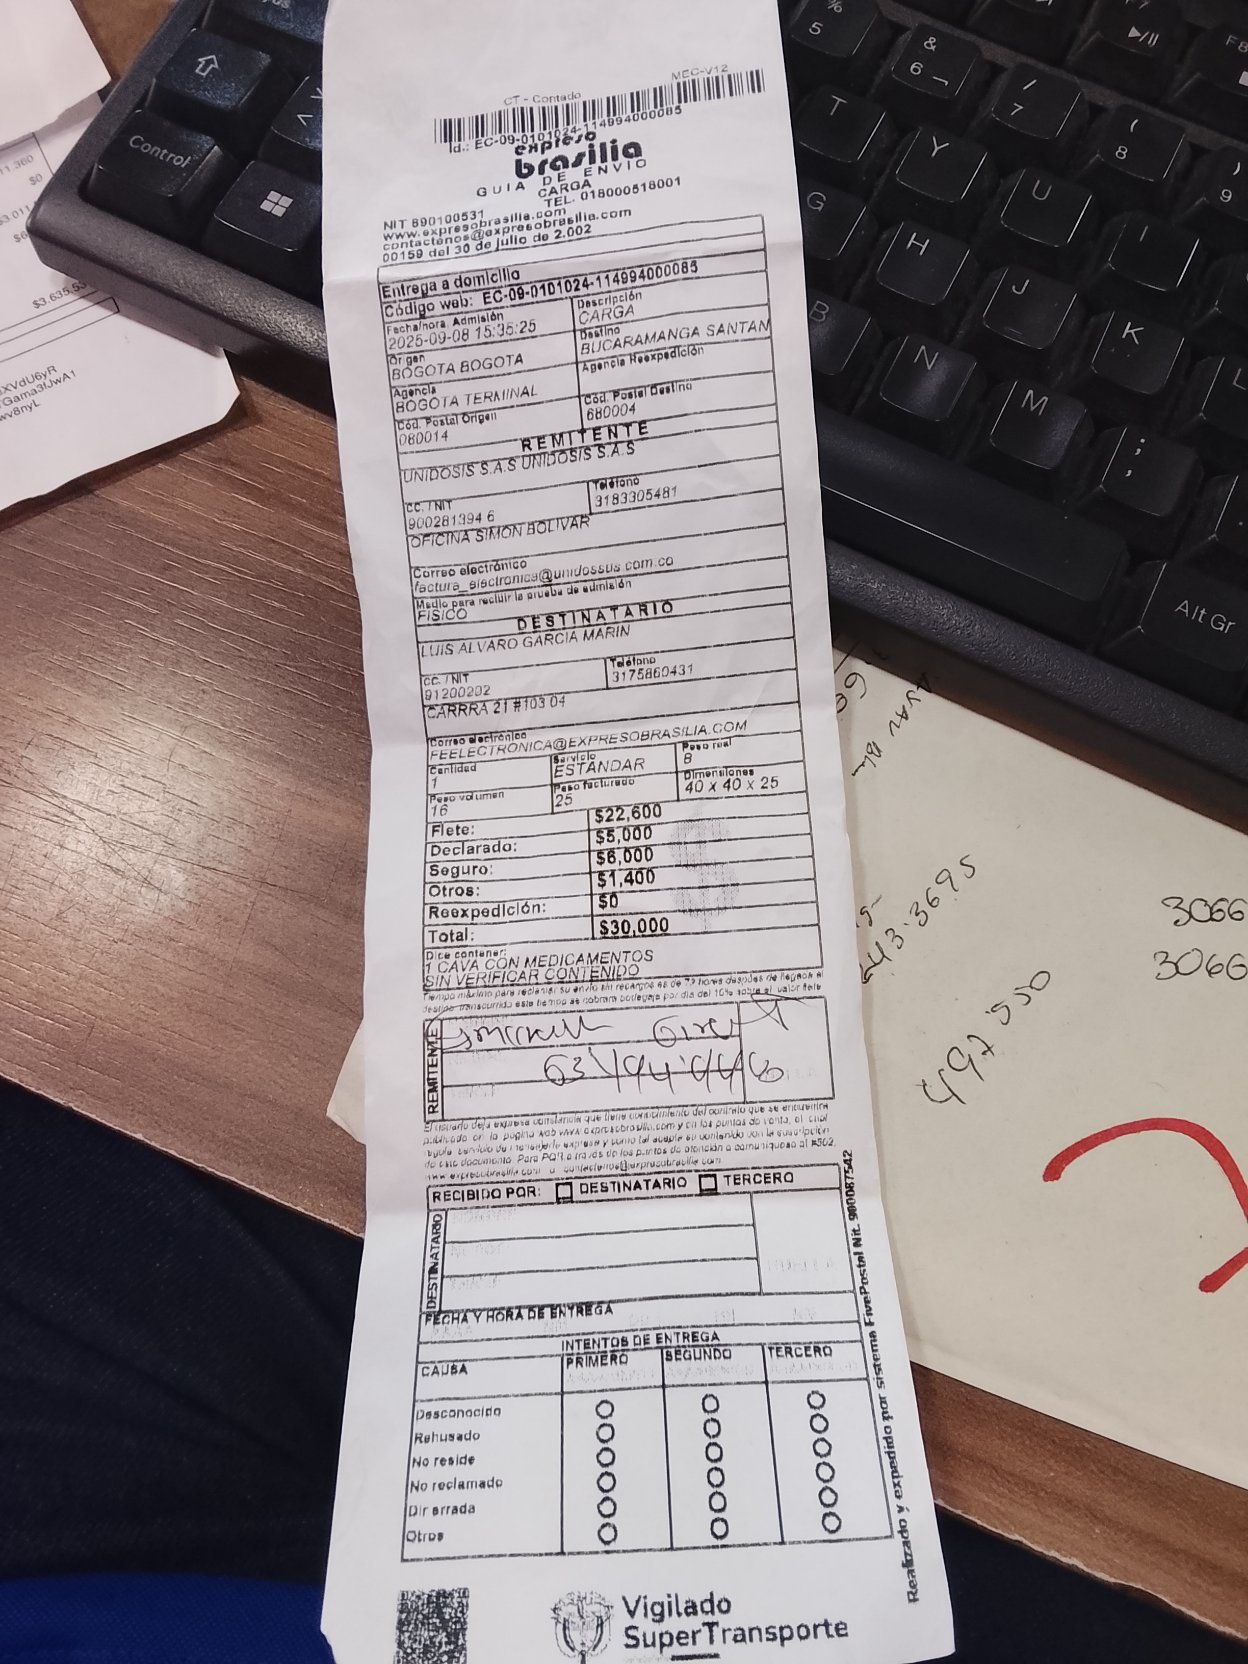 CT - Contado
MEC-V12
Id.: EC-09-0101024-114994000085
expreso
brasilia
GUIA DE ENVIO
CARGA
TEL. 018000518001
NIT 890100531
www.expresobrasilia.com
contactenos@expresobrasilia.com
00159 del 30 de julio de 2.002
Entrega a domicilio
Código web: EC-09-0101024-114994000085
Fecha/hora Admisión
2025-09-08 15:35:25
Descripción
CARGA
Origen
BOGOTA BOGOTA
Destino
BUCARAMANGA SANTAN
Agencia
BOGOTA TERMINAL
Agencia Reexpedición
Cód. Postal Origen
080014
Cód. Postal Destino
680004
REMITENTE
UNIDOSIS S.A.S UNIDOSIS S.A.S
CC. / NIT
900281394 6
Teléfono
3183305481
OFICINA SIMON BOLIVAR
Correo electrónico
factura_electronica@unidossus.com.co
Medio para recibir la prueba de admisión
FISICO
DESTINATARIO
LUIS ALVARO GARCIA MARIN
CC. / NIT
91200202
Teléfono
3175860431
CARRRA 21 #103 04
Correo electrónico
FEELECTRONICA@EXPRESOBRASILIA.COM
Cantidad
1
Servicio
ESTANDAR
Peso real
8
Peso volumen
16
Peso facturado
25
Dimensiones
40 x 40 x 25
Flete: $22,600
Declarado: $5,000
Seguro: $6,000
Otros: $1,400
Reexpedición: $0
Total: $30,000
Dice contener:
1 CAVA CON MEDICAMENTOS
SIN VERIFICAR CONTENIDO
Tiempo máximo para reclamar su envio sin recargos es de 72 horas después de llegado al
destino transcurrido este tiempo se cobrara bodegaje por dia del 10% sobre el valor flete
REMITENTE
El usuario deja expresa constancia que tiene conocimiento del contrato que se encuentra
publicado en la pagina web www.expresobrasilia.com y en los puntos de venta, el cual
regula
de este documento. Para PQR a través de los puntos de atención o comuniquese al #502,
www.expresobrasilia.com o contactenos@expresobrasilia.com
RECIBIDO POR: DESTINATARIO TERCERO
DESTINATARIO
FECHA Y HORA DE ENTREGA
INTENTOS DE ENTREGA
CAUSA PRIMERO SEGUNDO TERCERO
Desconocido
Rehusado
No reside
No reclamado
Dir errada
Otros
Realizado y expedido por sistema FivePostal Nit. 900087542
Vigilado
SuperTransporte
Control
% 5
& 6
/ 7
( 8
) 9
T
Y
U
I
G
H
J
K
L
B
N
M
; ,
Alt Gr
F7
F8
11.360
$0
$3.635.53
XVdU6yR
Gama3fJwA1
wv8nyL
43.3695
497.550
3066
3066